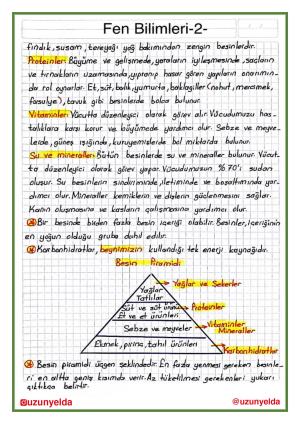 Fen Bilimleri-2-
fındık, susam, tereyağı yağ bakımından zengin besinlerdir.
Proteinler: Büyüme ve gelişmede, yaraların iyileşmesinde, saçların
ve tırnakların uzamasında, yıpranıp hasar gören yapıların onarımın-
da rol oynarlar. Et, süt, balık, yumurta, baklagiller (nohut, mercimek,
fasulye), tavuk gibi besinlerde bolca bulunur.
Vitaminler: Vücutta düzenleyici olarak görev alır. Vücudumuzu has-
talıklara karşı korur ve büyümede yardımcı olur. Sebze ve meyve-
lerde, güneş ışığında, kuruyemişlerde bol miktarda bulunur.
Su ve mineraller: Bütün besinlerde su ve mineraller bulunur. Vücut-
ta düzenleyici olarak görev yapar. Vücudumuzun %70'i sudan
oluşur. Su besinlerin sindiriminde, iletiminde ve boşaltımında yar-
dımcı olur. Mineraller kemiklerin ve dişlerin güçlenmesini sağlar.
Kanın oluşmasına ve kasların çalışmasına yardımcı olur.
Bir besinde birden fazla besin içeriği olabilir. Besinler, içeriğinin
en yoğun olduğu gruba dahil edilir.
Karbonhidratlar, beynimizin kullandığı tek enerji kaynağıdır.
Besin Piramidi
Yağlar Tatlılar
Yağlar ve Şekerler
Süt ve süt ürünü
Et ve et ürünleri
Proteinler
Sebze ve meyveler
Vitaminler
Mineraller
Ekmek, pirinç, tahıl ürünleri
Karbonhidratlar
Besin piramidi üçgen şeklindedir. En fazla yenmesi gereken besinle-
ri en altta geniş kısımda verir. Az tüketilmesi gerekenleri yukarı
çıktıkça belirtir.
@uzunyelda
@uzunyelda